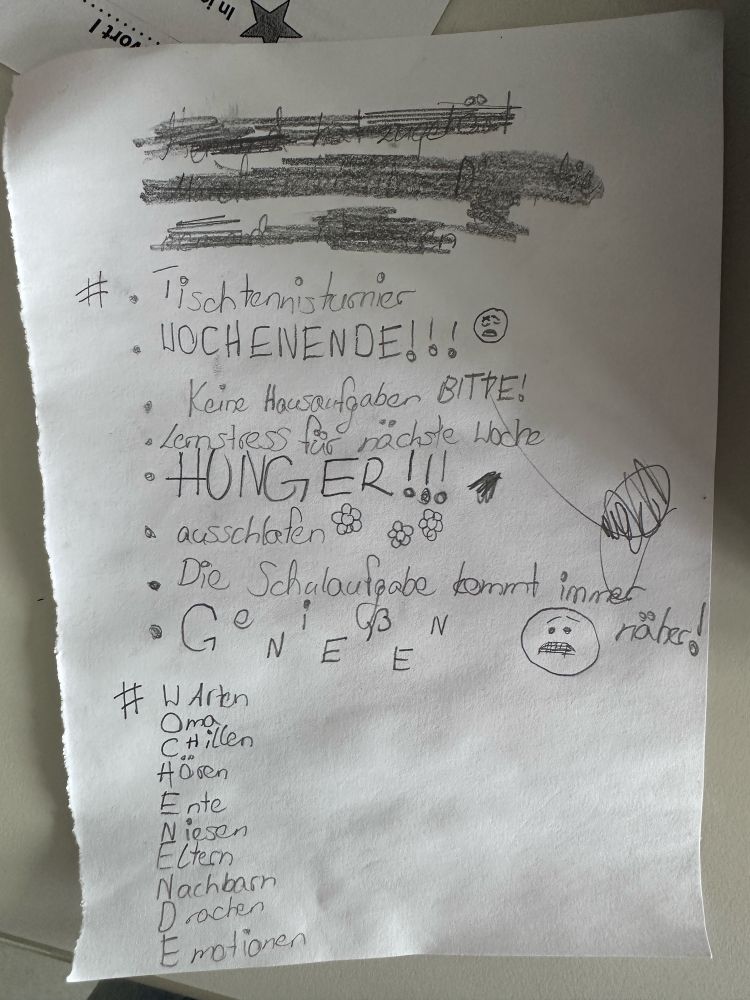 # • Tischtennisturnier
• WOCHENENDE!!!
• Keine Hausaufgaben BITTE!
• Lernstress für nächste Woche
• HUNGER!!!
• ausschlafen
• Die Schulaufgabe kommt immer
näher!
• GeNiEßEN
# WArten
Oma
CHillen
Hören
Ente
Niesen
Eltern
Nachbarn
Drachen
Emotionen